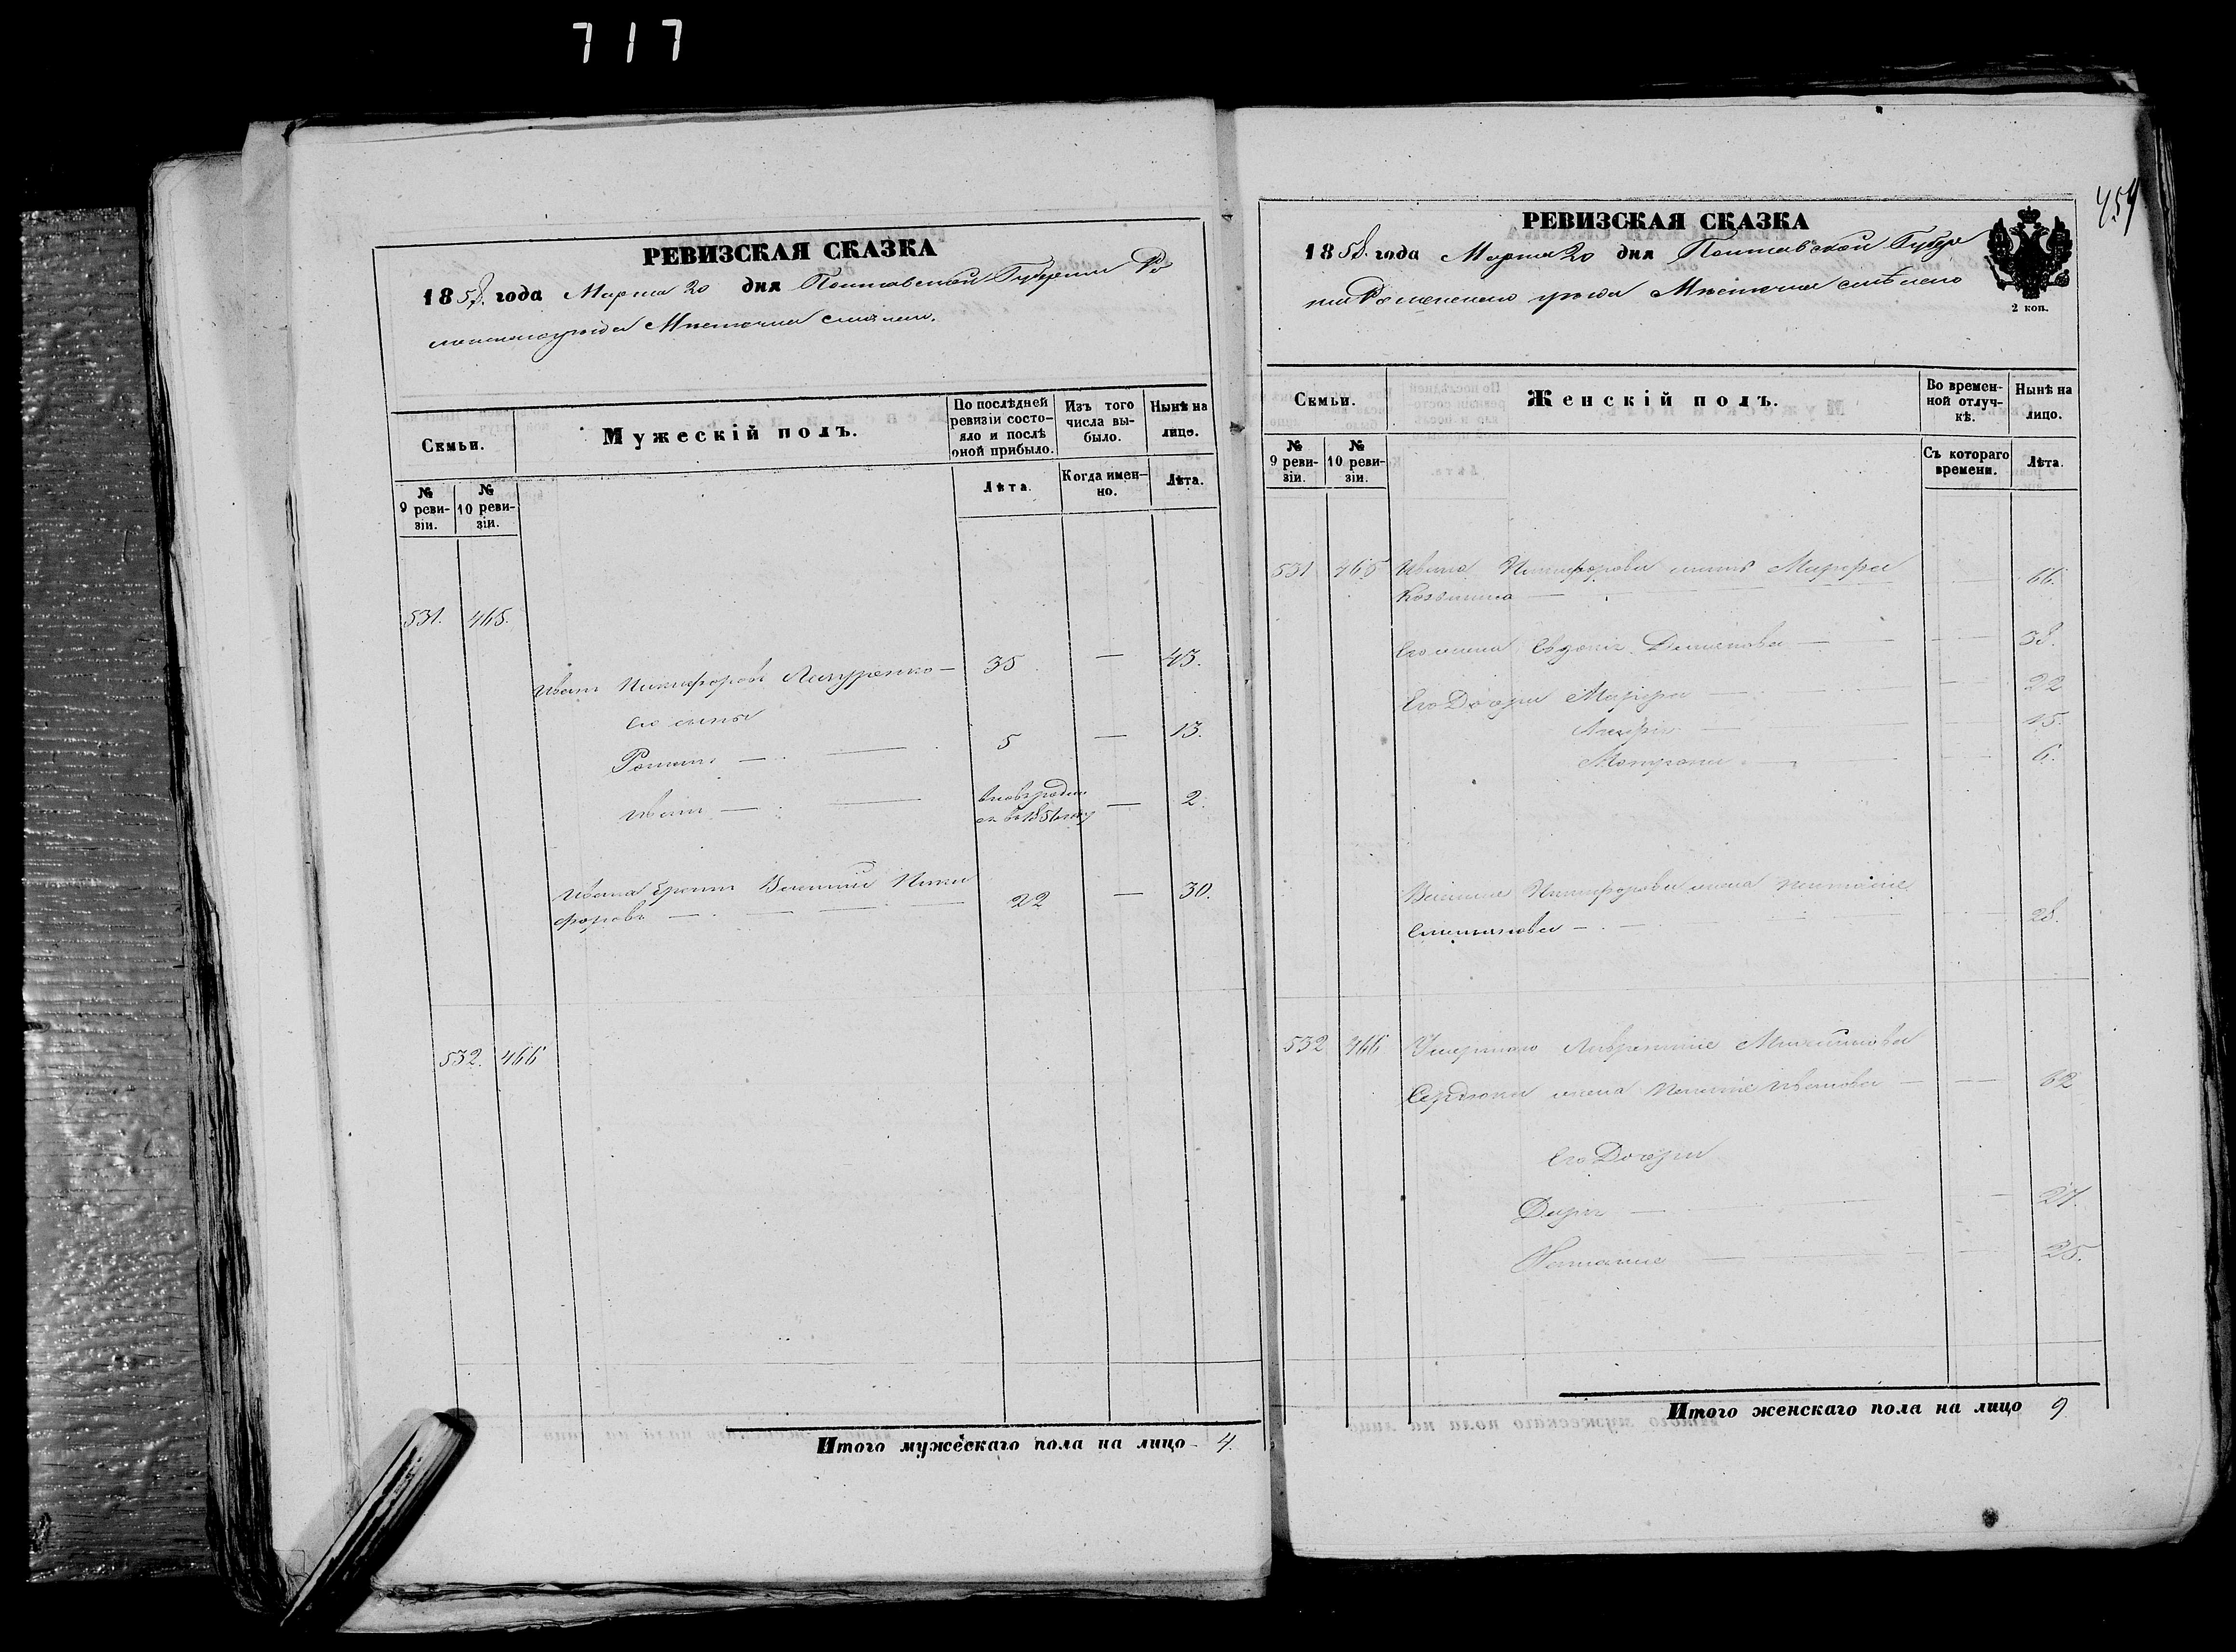 717
РЕВИЗСКАЯ СКАЗКА
1858. года Марта 20 дня Полтавской Губернии Ро
менского уѣзда Мѣстечка Смѣлого.
Семьи.
Мужескій полъ.
По послѣдней ревизіи состояло и послѣ оной прибыло.
Изъ того числа выбыло.
Нынѣ на лицо.
№ 9 ревизіи.
№ 10 ревизіи.
Лѣта.
Когда именно.
Лѣта.
531. 465.
Иванъ Никифоровъ — 35 — 43.
Его сыны
Романъ — 5 — 13.
Иванъ — вновьродил
ся въ 1856 году — 2.
Ивана братъ Василій Ники
форовъ — 22 — 30.
532. 466
Итого мужескаго пола на лицо 4.
459
РЕВИЗСКАЯ СКАЗКА
1858. года Марта 20 дня Полтавской Губер
ніи Роменского уѣзда Мѣстечка Смѣлого
2 коп.
Семьи.
Женскій полъ.
Во временной отлучкѣ.
Нынѣ на лицо.
№ 9 ревизіи.
№ 10 ревизіи.
Съ котораго времени.
Лѣта.
531 465 Ивана Никифорова мать Марфа
Козьмина — 66.
Его жена Евдокія Демьянова — 38.
Его Дочери Марфа — 22
— 15.
Матрона — 6.
Василія Никифорова жена Наталія
Степанова — 28.
532 466 Умершаго Лаврентія
Сердюка жена Ивановна — 62
Его Дочери
Дарія — 27.
Наталія — 25.
Итого женскаго пола на лицо 9